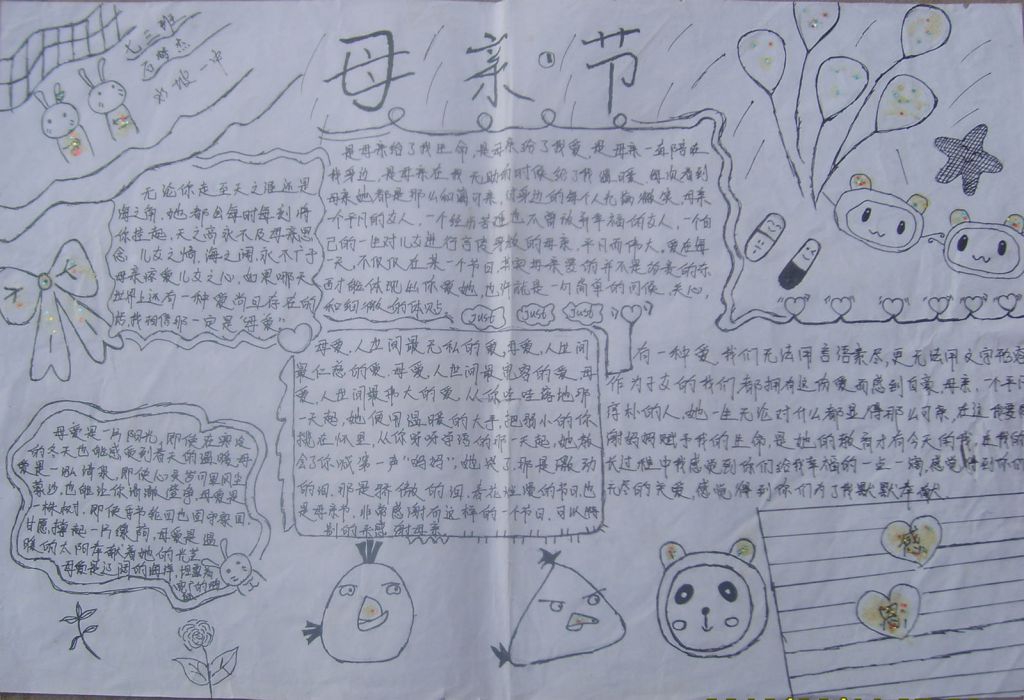 七三班
母亲·节
无论你走至天之涯还是
海之角,她都会每时每刻将
你挂起,天之高永不及母亲思
念儿女之情,海之阔,永不广于
母亲疼爱儿女之心,如果哪天
世界上还有一种爱尚且存在的
话,我相信那一定是“母爱”
是母亲给了我生命,是母亲给了我爱,是母亲一直陪在
我身边,是母亲在我无助的时候给了我温暖,每次看到
母亲她都是那么的和蔼可亲,对身边的每个人充满微笑,母亲
一个平凡的女人,一个经历苦难也不曾放弃幸福的女人,一个自
己的一生对儿女进行言传身教的母亲,平凡而伟大,爱在每
一天,不仅仅在某一个节日,其实母亲要的并不是的东
西才能体现出你爱她,也许就是一句简单的问候,关心,
和细微的体贴。
Just Just Just
母爱,人世间最无私的爱,母爱,人世间
最仁慈的爱,母爱,人世间最宽容的爱,母
爱,人世间最伟大的爱,从你呱呱落地那
一天起,她便用温暖的大手,把弱小的你
搅在怀里,从你呀呀学语的那一天起,她教
会了你喊第一声“妈妈”,她哭了,那是激动
的泪,那是骄傲的泪,春花浪漫的节日,也
是母亲节,非常感谢有这样的一个节日,可以特
别的来感谢母亲
有一种爱,我们无法用言语表尽,更无法用文字形容
作为子女的我们,都拥有这份爱而感到自豪,母亲,一个平凡
淳朴的人,她一生无论对什么都显得那么可亲,在这我要感
谢妈妈赋予我的生命,是她的教育才有今天的我,在我的成
长过程中我感觉到你们给我幸福的一点一滴,感觉得到你们
无尽的关爱,感觉得到你们为了我默默奉献
母爱是一片阳光,即使在寒冷
的冬天也能感觉到春天的温暖,母
爱是一泓清泉,即使心灵岁月里风尘
蒙沙,也能让你清澈,澄净,母爱是
一株树,即使春节轮回也固守家园,
甘愿撑起一片绿荫,母爱是温
暖的太阳奉献着她的光芒
母爱是辽阔的海岸
感